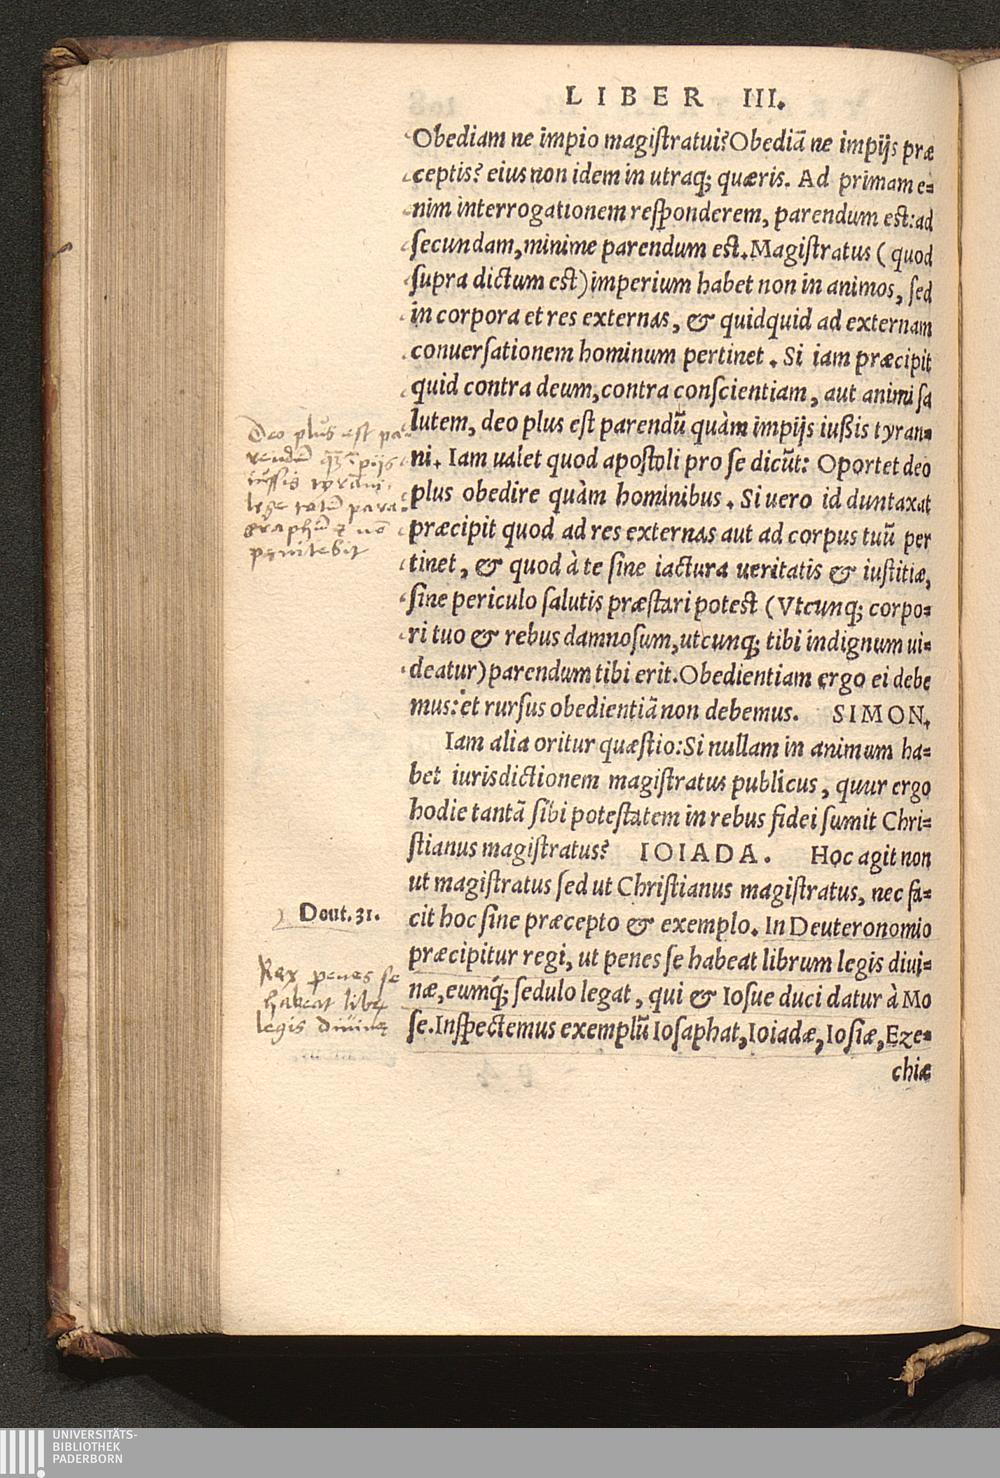 LIBER III.
Obediam ne impio magiſtratui? Obediã ne impijs præ
ceptis? eius non idem in utraq; quæris. Ad primam e=
nim interrogationem reſponderem, parendum est: ad
ſecundam, minime parendum est. Magiſtratus (quod
ſupra dictum est) imperium habet non in animos, ſed
in corpora et res externas, & quidquid ad externam
conuerſationem hominum pertinet. Si iam præcipit
quid contra deum, contra conſcientiam, aut animi ſa
lutem, deo plus eſt parendũ quàm impijs iußis tyran=
ni. Iam ualet quod apoſtoli pro ſe dicũt: Oportet deo
plus obedire quàm hominibus. Si uero id duntaxat
præcipit quod ad res externas aut ad corpus tuũ per
tinet, & quod à te ſine iactura ueritatis & iuſtitiæ,
ſine periculo ſalutis præſtari potest (Vtcunq; corpo=
ri tuo & rebus damnoſum, utcunq; tibi indignum ui=
deatur) parendum tibi erit. Obedientiam ergo ei debe
mus: et rurſus obedientiã non debemus. SIMON.
Iam alia oritur quæſtio: Si nullam in animum ha=
bet iurisdictionem magiſtratus publicus, quur ergo
hodie tantã ſibi poteſtatem in rebus fidei ſumit Chri=
ſtianus magiſtratus? IOIADA. Hoc agit non
ut magiſtratus ſed ut Chriſtianus magiſtratus, nec fa=
cit hoc ſine præcepto & exemplo. In Deuteronomio
præcipitur regi, ut penes ſe habeat librum legis diui=
næ, eumq́; ſedulo legat, qui & Ioſue duci datur à Mo
ſe. Inſpectemus exemplũ Ioſaphat, Ioiadæ, Ioſiæ, Eze=
chiæ
Deo plus est pa=
rendũ
iussis tyrani.
lege totũ para=
graphũ
penitebit
Deut. 31.
Rex penes se
habeat librũ
legis diuinę
UNIVERSITÄTS-
BIBLIOTHEK
PADERBORN